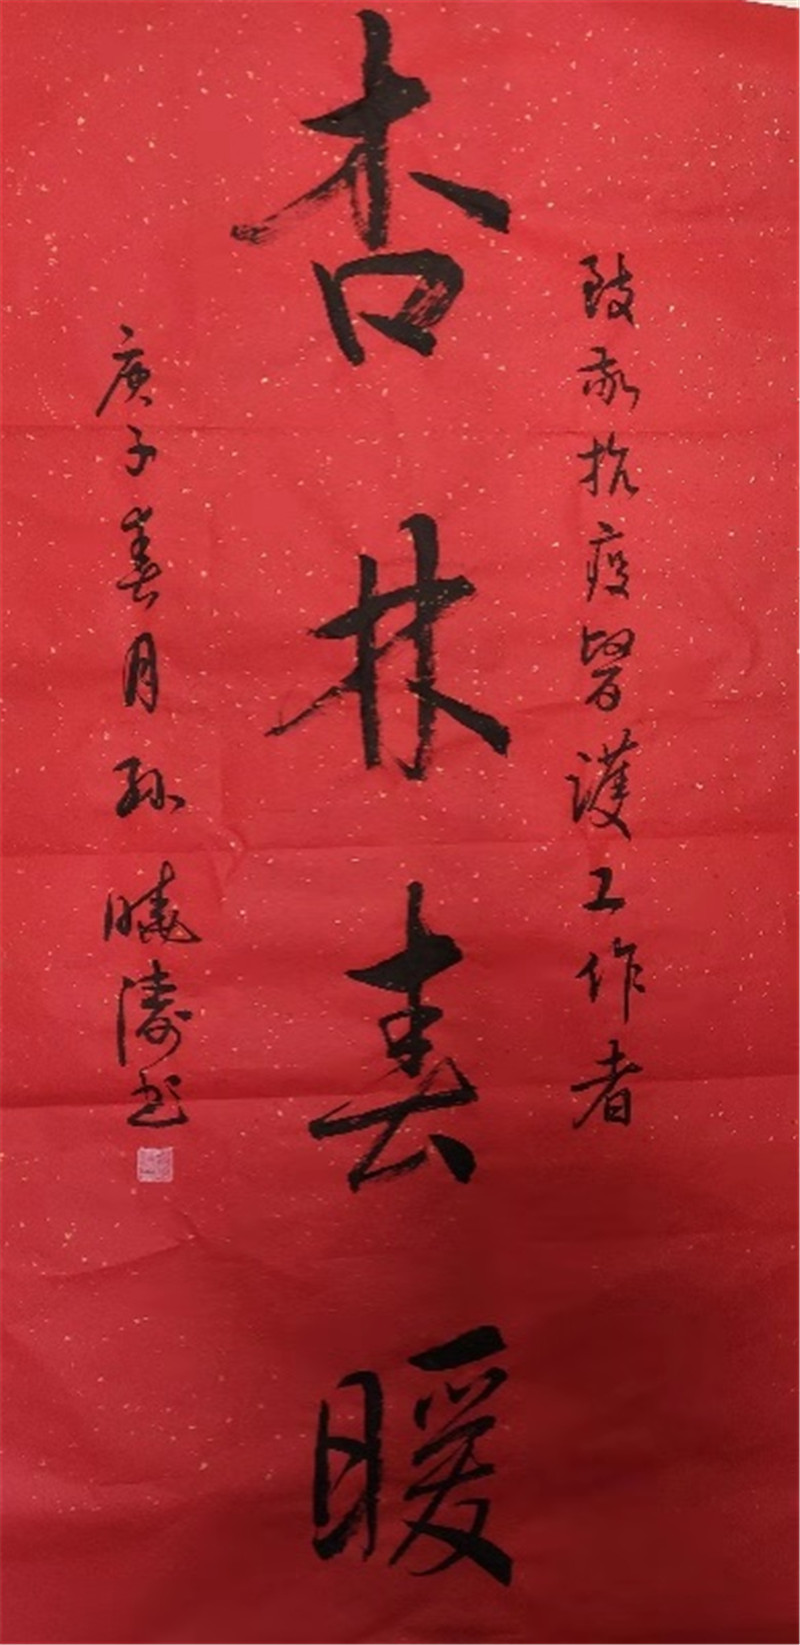 致敬抗疫醫護工作者
杏林春暖
庚子春月孫曉濤书